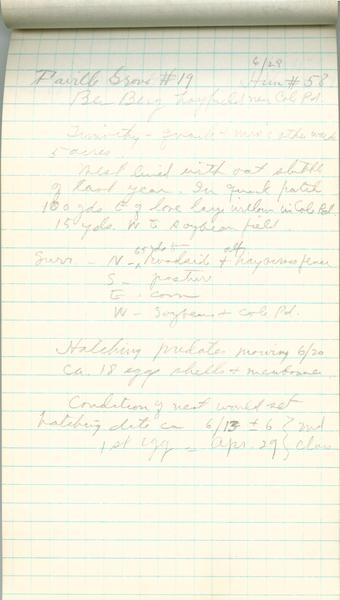 6/29
Faville Grove #19 Hun # 58
Ben Berg hayfield near Cole Pd.
Timothy - quack + misc other weeds
5 acres.
Nest lined with oat stubble
of last year. In quack patch
100 yds. E of lone lazy willow in Cole Pd.
15 yds. W to soybean field.
Surr. - N - 65 yds to roadside + alf hay across fence
S - pasture
E - corn
W - Soybeans + Cole Pd.
Hatching predates mowing 6/20
ca. 18 egg shells + membranes.
Condition of nest would set
hatching date ca 6/13 ± 6 } 2nd
1st egg = Apr. 29 } class